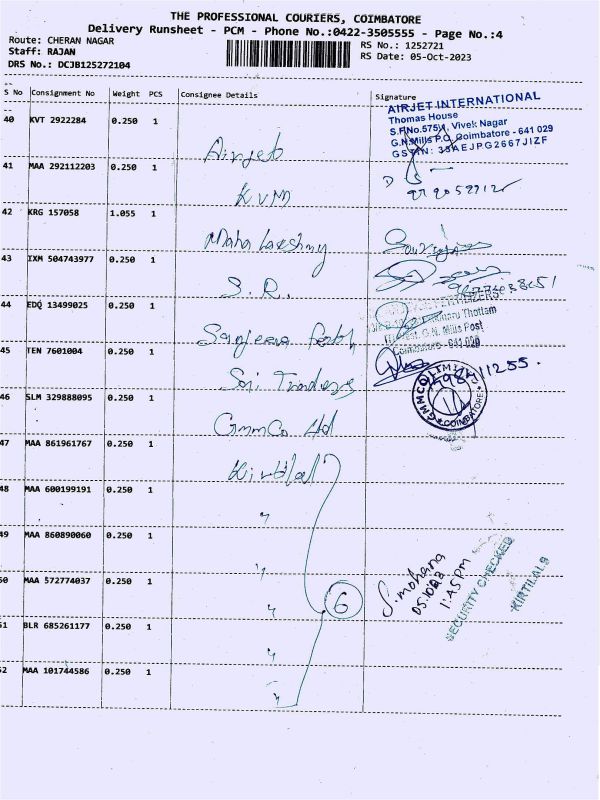 THE PROFESSIONAL COURIERS, COIMBATORE
Delivery Runsheet - PCM - Phone No.:0422-3505555 - Page No.:4
Route: CHERAN NAGAR
RS No.: 1252721
Staff: RAJAN
RS Date: 05-Oct-2023
DRS No.: DCJB125272104
S No Consignment No Weight PCS Consignee Details Signature
40 KVT 2922284 0.250 1 Airjet
AIRJET INTERNATIONAL
Thomas House
S.F.No.575/1, Vivek Nagar
G.N.Mills P.O, Coimbatore - 641 029
GSTIN: 33AEJPG2667J1ZF
41 MAA 292112203 0.250 1 KVM
42 KRG 157058 1.055 1 Maha Lakshmy
43 IXM 504743977 0.250 1 S.R.
44 EDQ 13499025 0.250 1 Sanjeeva
FERTILIZERS
Thottam
G.N. Mills Post
Coimbatore - 641 029
45 TEN 7601004 0.250 1 Sri Traders
46 SLM 329888095 0.250 1 Gmmco Ltd
GMMCO LIMITED
COIMBATORE
47 MAA 861961767 0.250 1 Kirtilal
48 MAA 600199191 0.250 1 "
49 MAA 860890060 0.250 1 "
50 MAA 572774037 0.250 1 " 6
S. mohana
05.10.23
1:45 PM
SECURITY CHECKED
KIRTILALS
51 BLR 685261177 0.250 1 "
52 MAA 101744586 0.250 1 "